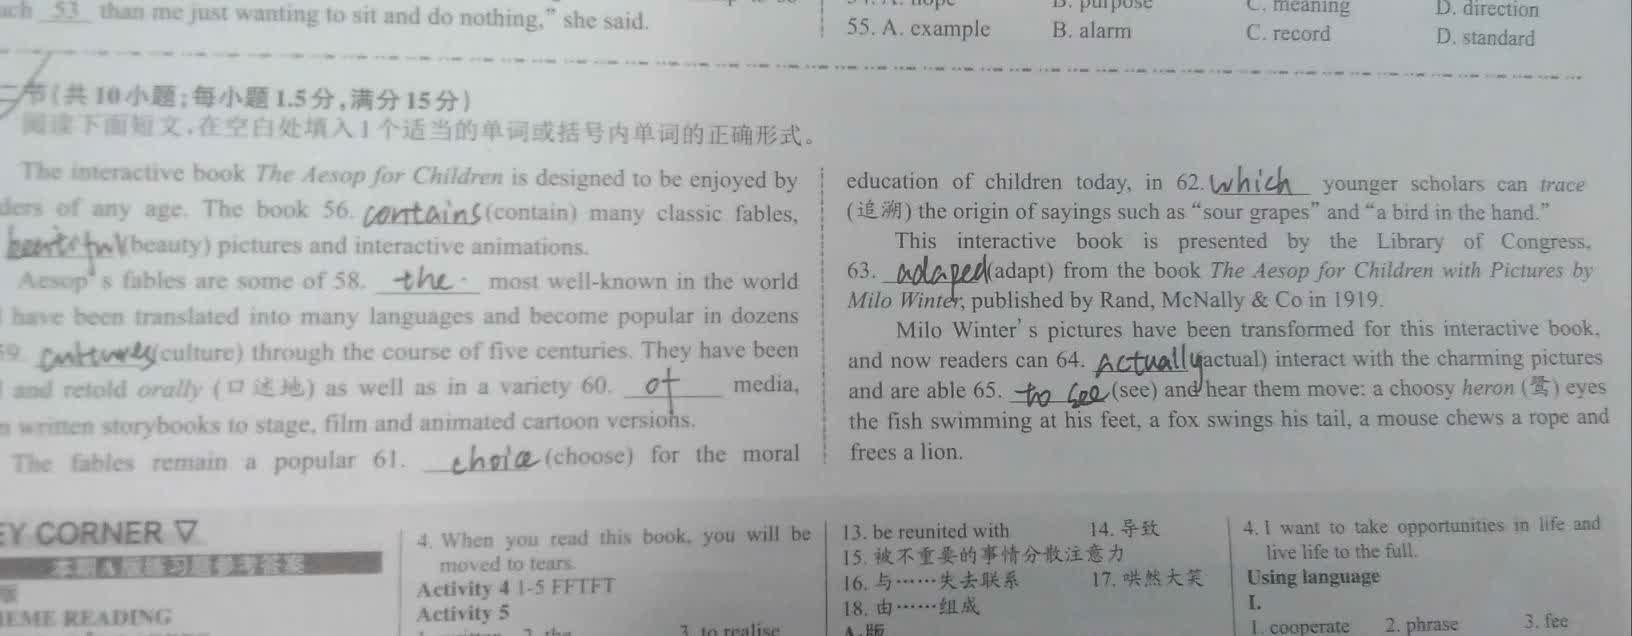 53 than me just wanting to sit and do nothing,” she said.
B. purpose C. meaning D. direction
55. A. example B. alarm C. record D. standard
节(共10小题;每小题1.5分,满分15分)
阅读下面短文,在空白处填入1个适当的单词或括号内单词的正确形式。
The interactive book The Aesop for Children is designed to be enjoyed by
of any age. The book 56. contains (contain) many classic fables,
(beauty) pictures and interactive animations.
Aesop's fables are some of 58. the most well-known in the world
have been translated into many languages and become popular in dozens
(culture) through the course of five centuries. They have been
and retold orally (口述地) as well as in a variety 60. of media,
written storybooks to stage, film and animated cartoon versions.
The fables remain a popular 61. choice (choose) for the moral
education of children today, in 62. which younger scholars can trace
(追溯) the origin of sayings such as “sour grapes” and “a bird in the hand.”
This interactive book is presented by the Library of Congress,
63. adaped (adapt) from the book The Aesop for Children with Pictures by
Milo Winter, published by Rand, McNally & Co in 1919.
Milo Winter's pictures have been transformed for this interactive book,
and now readers can 64. Actually (actual) interact with the charming pictures
and are able 65. to see (see) and hear them move: a choosy heron (鹭) eyes
the fish swimming at his feet, a fox swings his tail, a mouse chews a rope and
frees a lion.
CORNER
本期A版练习题参考答案
READING
4. When you read this book, you will be
moved to tears.
Activity 4 1-5 FFTFT
Activity 5
2. the 3. to realise
13. be reunited with 14. 导致
15. 被不重要的事情分散注意力
16. 与……失去联系 17. 哄然大笑
18. 由……组成
A 版
4. I want to take opportunities in life and
live life to the full.
Using language
I.
1. cooperate 2. phrase 3. fee